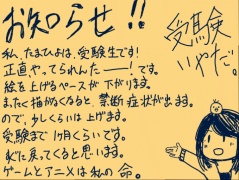 お知らせ!!
受験
いやだ。
私、たまひよは、受験生です!
正直やってられんわーー!です。
絵を上げるペースが下がります。
まったく描かなくなると、禁断症状が出ます。
ので、少しくらいは上げます。
受験まで1ヶ月くらいです。
すぐに戻ってくると思います。
ゲームとアニメは私の命。